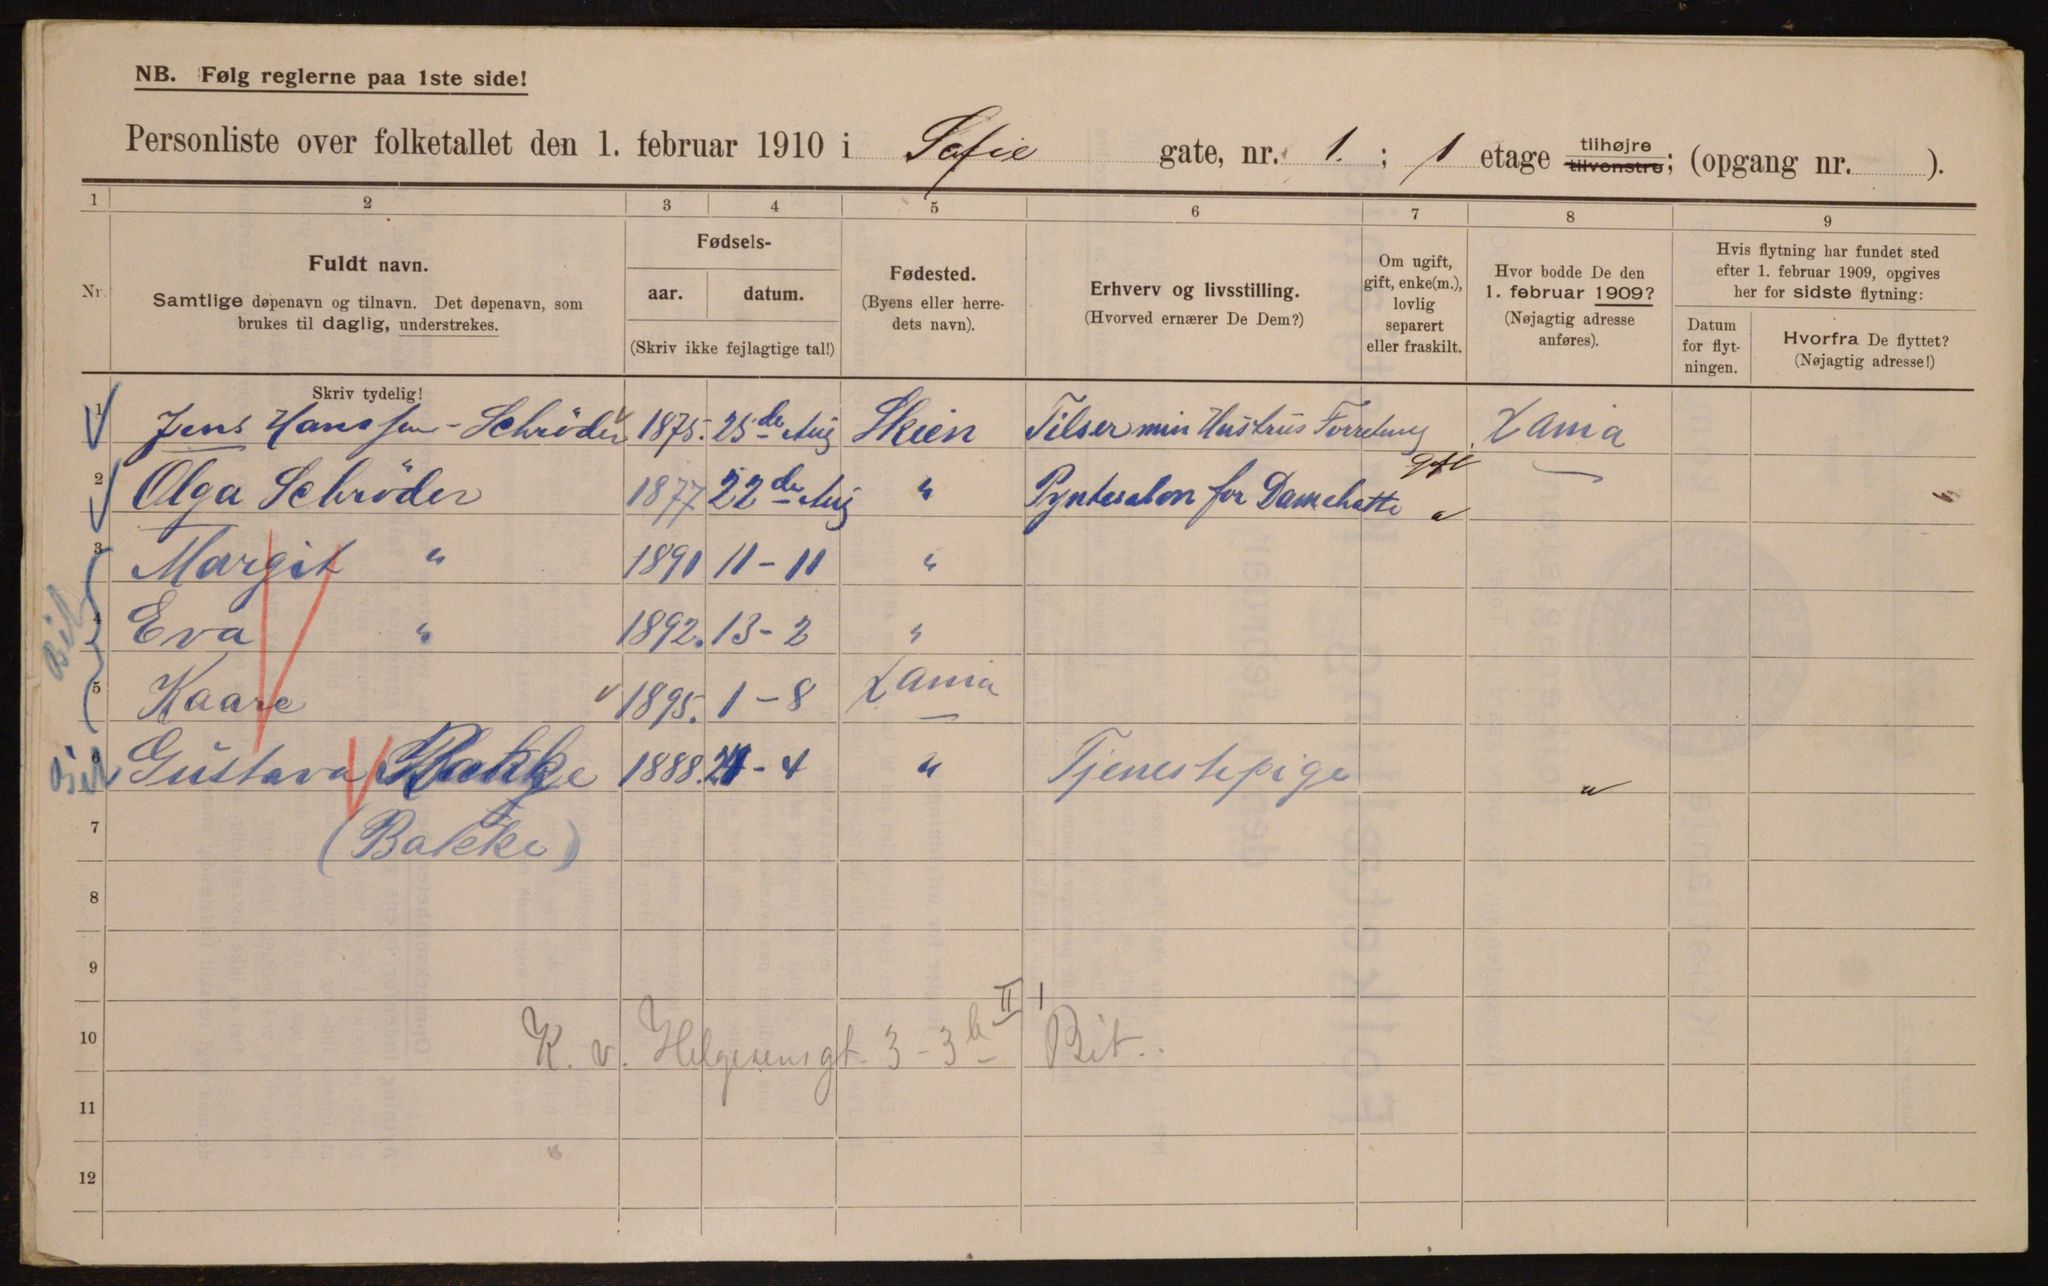 NB. Følg reglerne paa 1ste side!
Personliste over folketallet den 1. februar 1910 i Sofie gate, nr. 1. ; 1 etage tilhøjre tilvenstre; (opgang nr. ).
1 2 3 4 5 6 7 8 9
Nr.
Fuldt navn.
Samtlige døpenavn og tilnavn. Det døpenavn, som
brukes til daglig, understrekes.
Skriv tydelig!
Fødsels-
aar. datum.
(Skriv ikke fejlagtige tal!)
Fødested.
(Byens eller herre-
dets navn).
Erhverv og livsstilling.
(Hvorved ernærer De Dem?)
Om ugift,
gift, enke(m.),
lovlig
separert
eller fraskilt.
Hvor bodde De den
1. februar 1909?
(Nøjagtig adresse
anføres).
Hvis flytning har fundet sted
efter 1. februar 1909, opgives
her for sidste flytning:
Datum
for flyt-
ningen.
Hvorfra De flyttet?
(Nøjagtig adresse!)
1 Jens Hanssen-Schröder 1875. 25de Aug Skien Tilser min Hustrus Forretning gft Xania
2 Olga Schröder 1877 22de Aug " Pyntesalon for Damehatte "
3 Margit " 1891 11-11 "
4 Eva " 1892. 13-2 "
5 Kaare 1895. 1-8 Xania
6 Gustava Bakke 1888. 24-4 " Tjenestepige "
7 (Bakke)
8
9
10 K. v. Helgesensgt. 3-3b II 1 Bit.
11
12